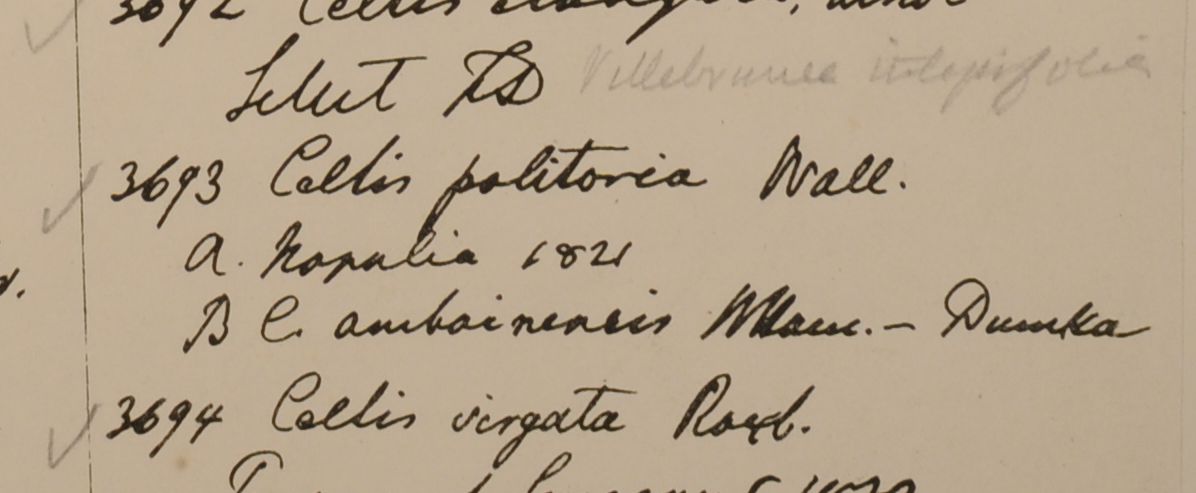 3692 Celtis
Silhet FD Villebrunea integrifolia
3693 Celtis politoria Wall.
A. Napalia 1821
B C. amboinensis Wlam. – Dumka
3694 Celtis virgata Roxb.